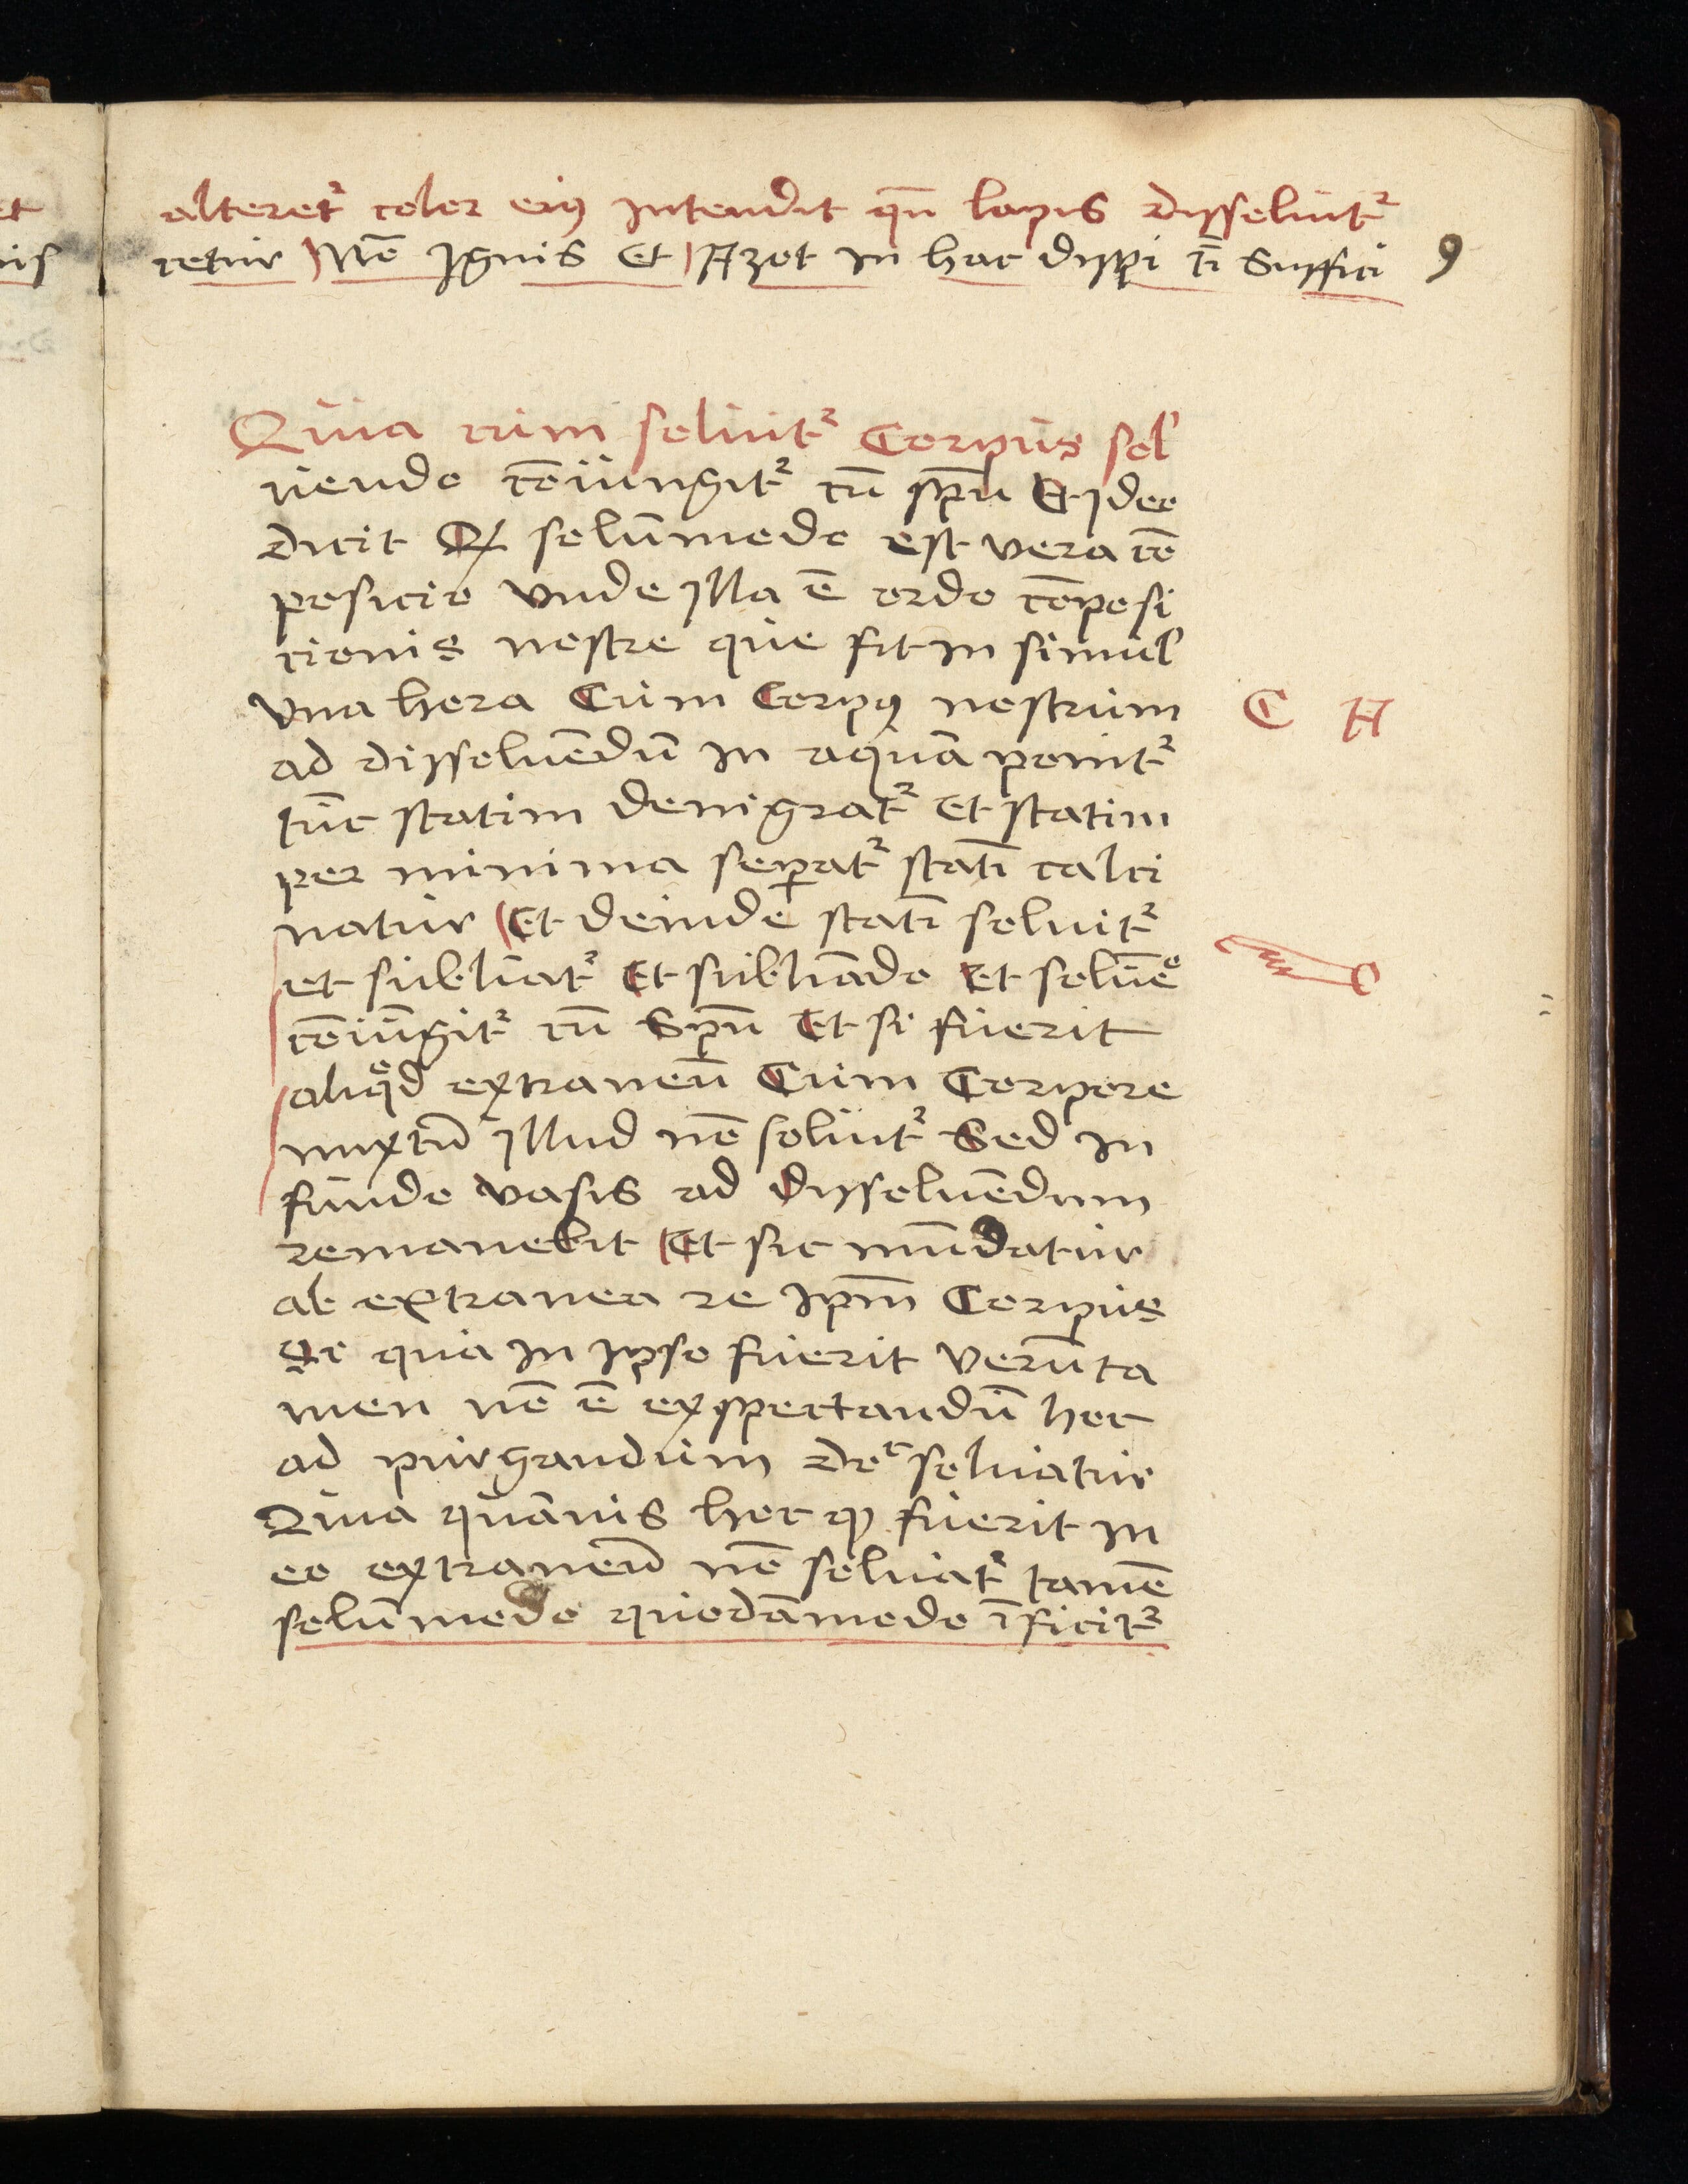 alteret᷑ color eiꝰ Intendit qn̄ lapis dissoluit᷑
retur Nō Ignis Et Azot in hac disp̄i ti Suffici 9
Quia cum soluit᷑ Corpus sol
uendo cōiungit᷑ cū sp̄u Et Ideo
dicit Ꝙ solūmodo est vera cō
posicio vnde Illa ē ordo cōposi
cionis nostre que fit in simul
vna hora Cum Corpꝰ nostrum
ad dissoluēdū in aquā ponit᷑
tūc statim denigrat᷑ Et statim
per minima sep̄at᷑ statī calci
natur Et deinde statī soluit᷑
et subliat᷑ Et subliādo Et soluēᵒ
cōiūgit᷑ cū Sp̄u Et si fuerit
aliqͦd extraneū Cum Corpore
mixtū Illud nō soluit᷑ Sed in
fundo vasis ad dissoluēdum
remanebit Et sic mūdatur
ab extranea re Ip̄m Corpus
Si qua in Ipso fuerit verūta
men nō ē exspectandū hoc
ad purgandum doᶜ soluatur
Quia quāuis hoc ꝙ fuerit in
eo extraneū nō soluat᷑ tamē
solūmodo quodāmodo īficit᷑
C A